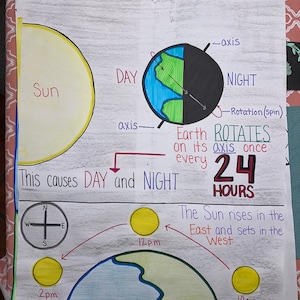 axis
DAY
NIGHT
Sun
Rotation (spin)
axis
Earth ROTATES
on its axis once
every 24
HOURS
This causes DAY and NIGHT
N
W E
S
The Sun rises in the
East and sets in the
West
12pm
2pm